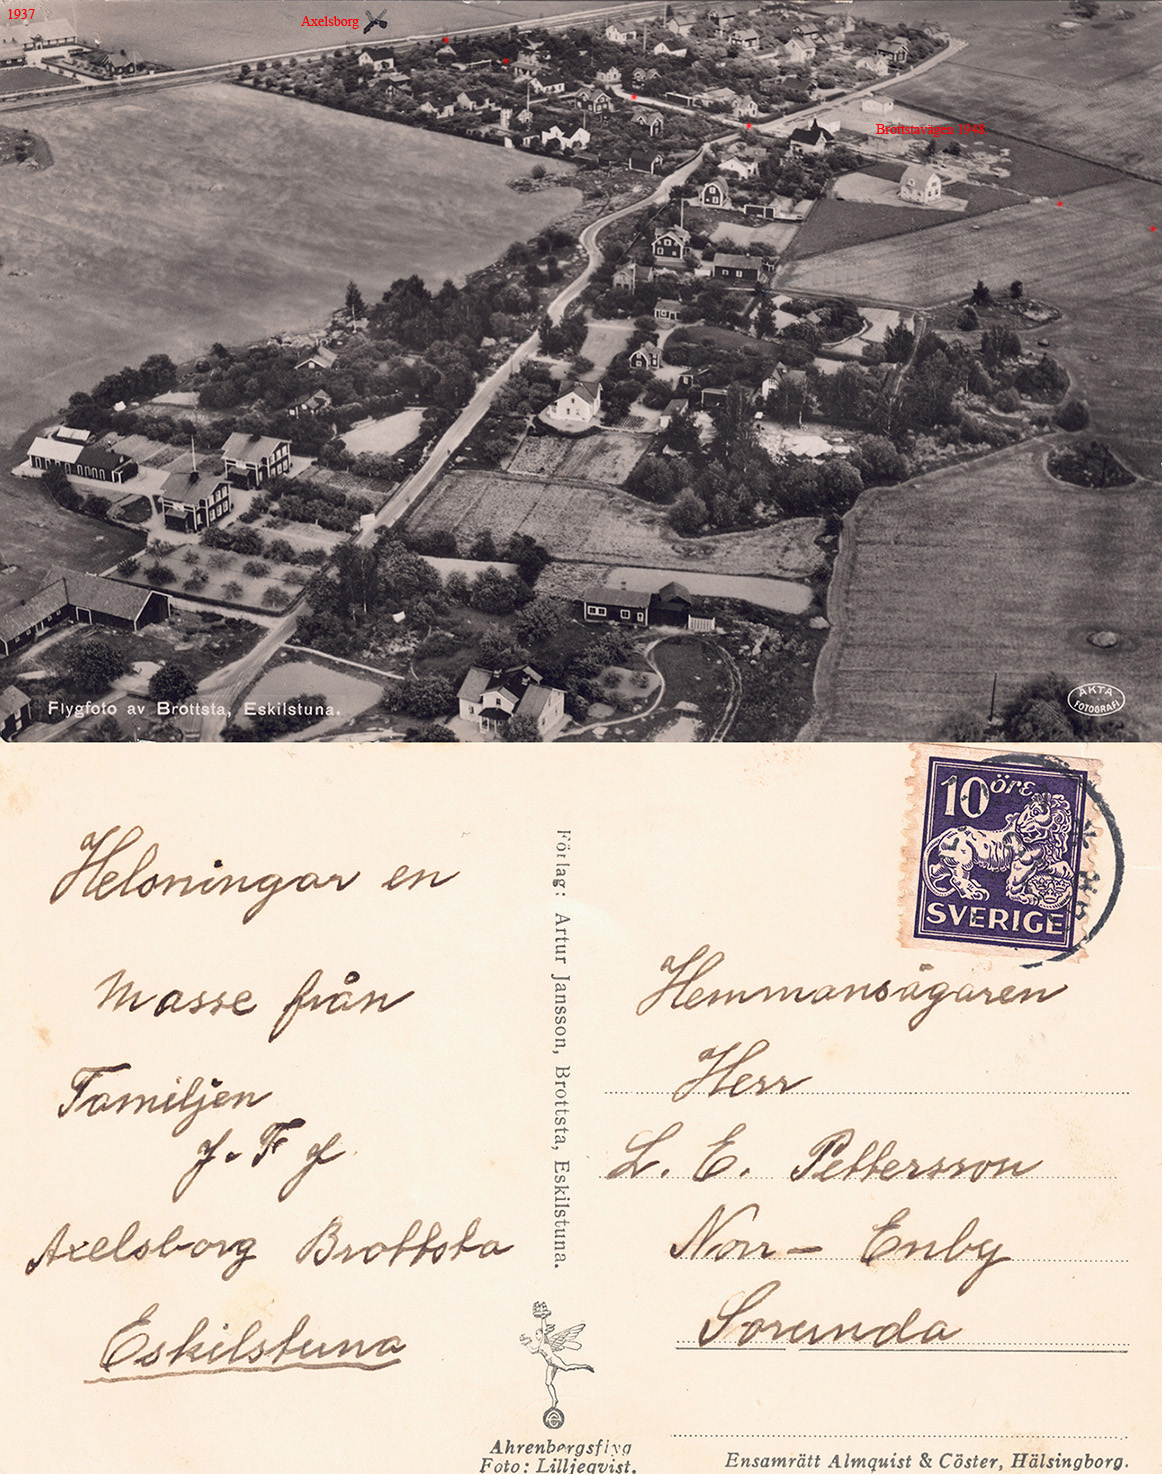 1937
Axelsborg
Brottstavägen 1948
Flygfoto av Brottsta, Eskilstuna.
ÄKTA
FOTOGRAFI
10 öre
SVERIGE
Helsningar en
Masse från
Familjen
J. F. J.
Axelsborg Brottsta
Eskilstuna
Förlag: Artur Jansson, Brottsta, Eskilstuna.
Hemmansägaren
Herr
L. E. Pettersson
Norr - Enby
Sorunda
Ahrenbergsflyg
Foto: Lilljeqvist.
Ensamrätt Almquist & Cöster, Hälsingborg.